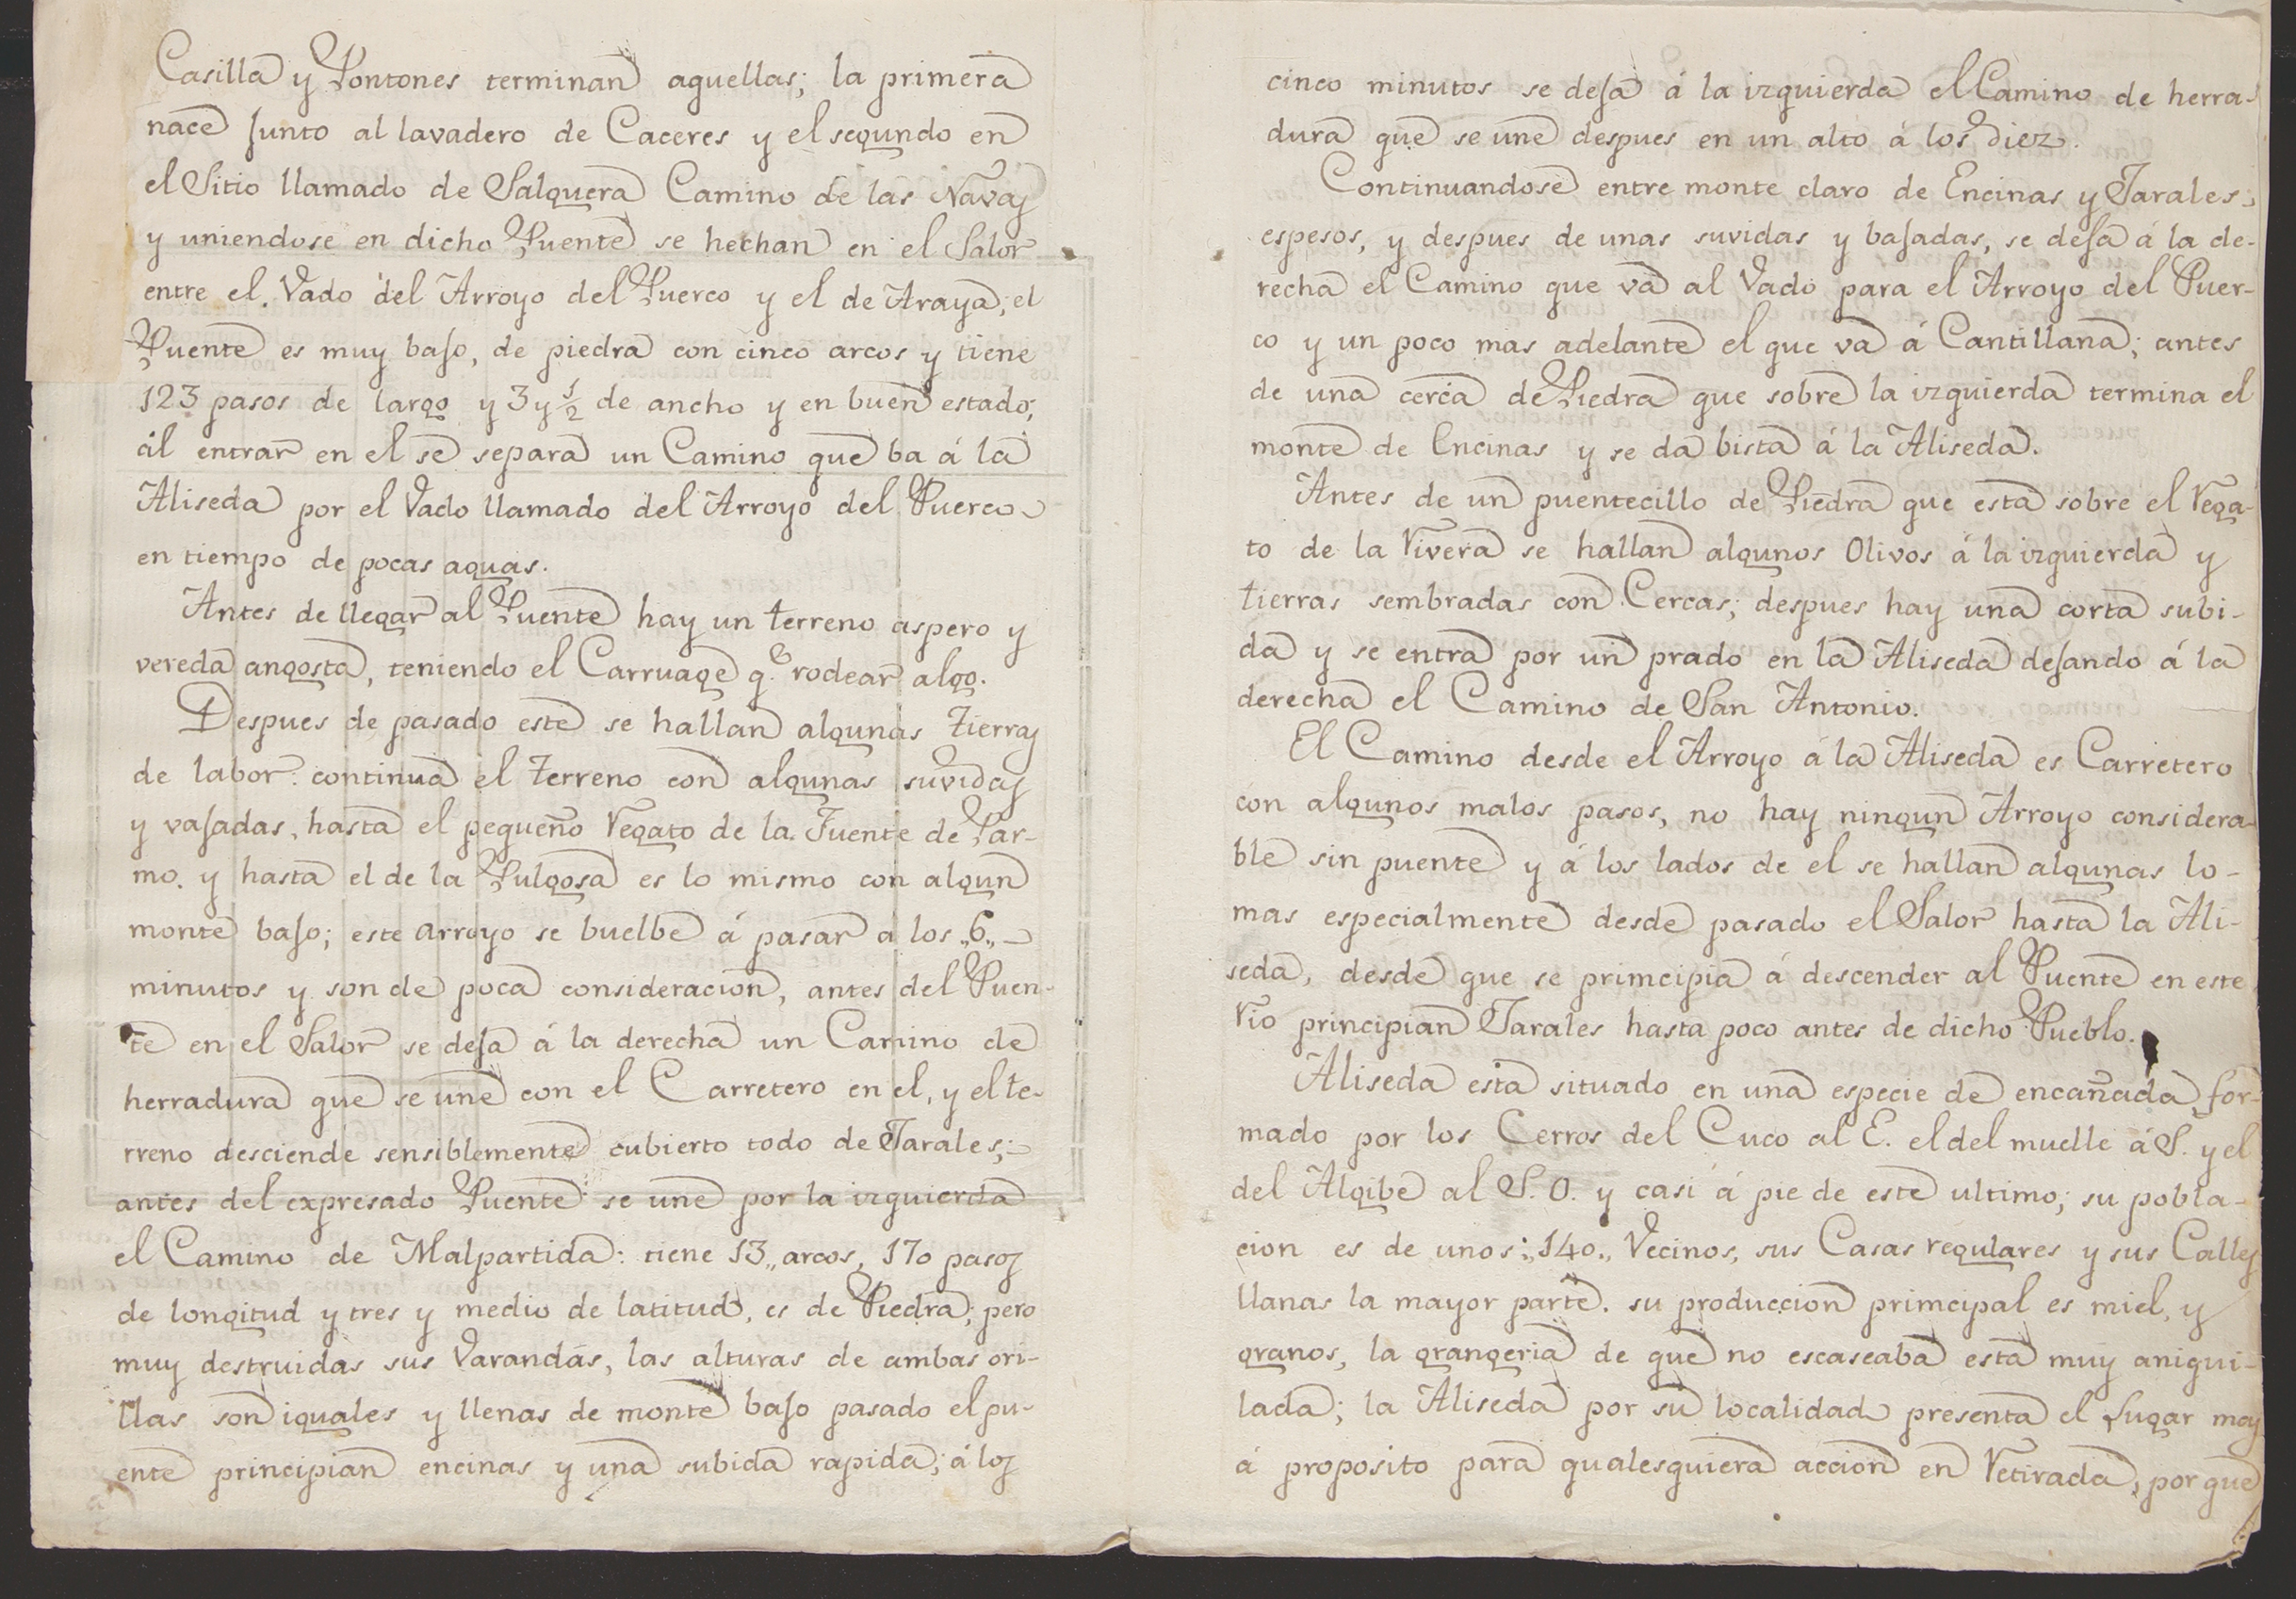 Casilla y Pontones terminan aquellas; la primera
nace Junto al lavadero de Caceres y el segundo en
el Sitio llamado de Salquera Camino de las Navas
y uniendose en dicho Puente se hechan en el Salor
entre el Vado del Arroyo del Puerco y el de Araya; el
Puente es muy bajo, de piedra con cinco arcos y tiene
123 pasos de largo y 3 y 1/2 de ancho y en buen estado;
al entrar en el se separa un Camino que ba á la
Aliseda por el Vado llamado del Arroyo del Puerco
en tiempo de pocas aguas.
Antes de llegar al Puente hay un terreno aspero y
vereda angosta, teniendo el Carruage q.e rodear algo.
Despues de pasado este se hallan algunas tierras
de labor: continua el terreno con algunas suvidas
y vajadas, hasta el pequeño Regato de la Fuente de Par-
mo. y hasta el de la Pulgosa es lo mismo con algun
monte bajo; este arroyo se buelbe á pasar á los „6„
minutos y son de poca consideracion, antes del Puen-
te en el Salor se deja á la derecha un Camino de
herradura que se une con el Carretero en el, y el te-
rreno desciende sensiblemente cubierto todo de Jarales;
antes del expresado Puente se une por la izquierda
el Camino de Malpartida: tiene 13„ arcos, 170 pasos
de longitud y tres y medio de latitud, es de Piedra; pero
muy destruidas sus Varandas, las alturas de ambas ori-
llas son iguales y llenas de monte bajo pasado el pu-
ente principian encinas y una subida rapida; á los
cinco minutos se deja á la izquierda el Camino de herra-
dura que se une despues en un alto á los diez.
Continuandose entre monte claro de Encinas y Jarales
espesos, y despues de unas suvidas y bajadas, se deja á la de-
recha el Camino que va al Vado para el Arroyo del Puer-
co y un poco mas adelante el que va á Cantillana; antes
de una cerca de Piedra que sobre la izquierda termina el
monte de Encinas y se da bista á la Aliseda.
Antes de un puentecillo de Piedra que esta sobre el Rega-
to de la Rivera se hallan algunos Olivos á la izquierda y
tierras sembradas con Cercas; despues hay una corta subi-
da y se entra por un prado en la Aliseda dejando á la
derecha el Camino de San Antonio.
El Camino desde el Arroyo á la Aliseda es Carretero
con algunos malos pasos, no hay ningun Arroyo considera-
ble sin puente y á los lados de el se hallan algunas lo-
mas especialmente desde pasado el Salor hasta la Ali-
seda, desde que se primcipia á descender al Puente en este
Rio principian Jarales hasta poco antes de dicho Pueblo.
Aliseda esta situado en una especie de encañada for-
mado por los Cerros del Cuco al E. el del muelle á S. y el
del Algibe al S. O. y casi á pie de este ultimo; su pobla-
cion es de unos „140„ Vecinos, sus Casas regulares y sus Calles
llanas la mayor parte. su produccion primcipal es miel, y
granos, la grangeria de que no escaseaba esta muy aniqui-
lada; la Aliseda por su localidad presenta el Lugar mas
á proposito para qualesquiera accion en Retirada, por que